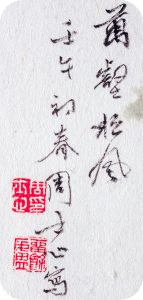 萬壑松風
壬午初春周士心寫